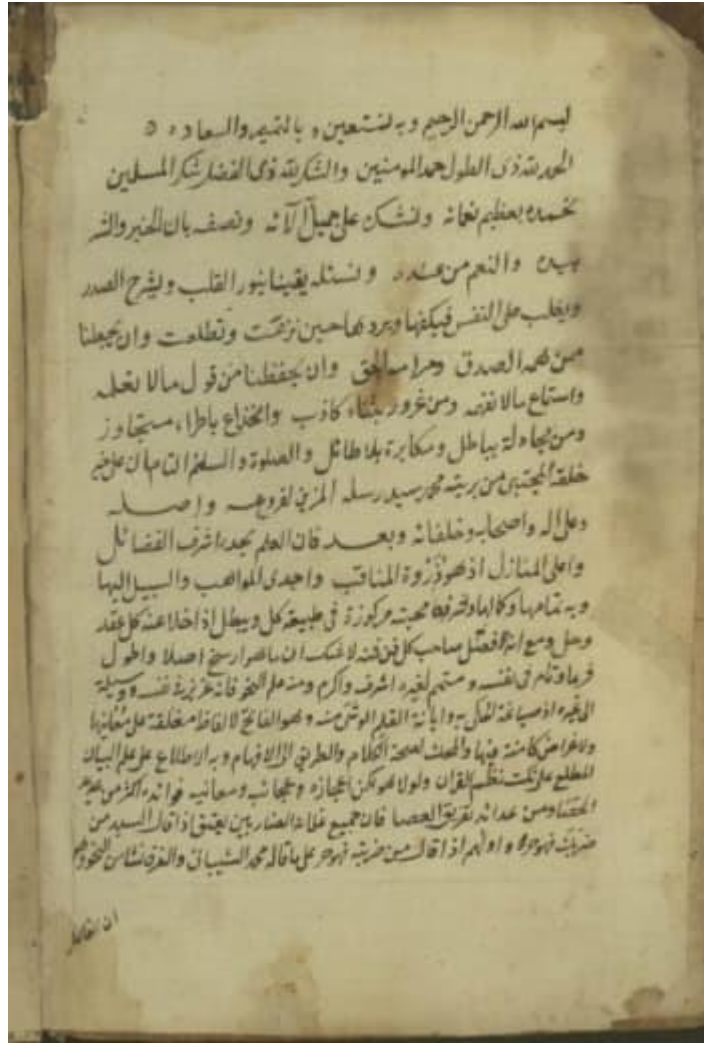 بسم الله الرحمن الرحيم وبه نستعين ه بالتميم والسعاده ه
الحمد لله ذى الطول حمد المومنين والشكر لله ذى الفضل شكر المسلمين
نحمده بعظيم نعمائه ونشكر على جميل آلائه ونصفه بان الخير والشر
بيده والنعم من عنده ونسئله يقينا ينور القلب ويشرح الصدر
ويغلب على النفس فيكفها ويردها حين نزعت وتطلعت وان يجعلنا
ممن همه الصدق ومرامه الحق وان يحفظنا من قول مالا نعلمه
واستماع مالا نفهم ومن غرور بثناء كاذب وانخداع باطراء متجاوز
ومن مجادلة بباطل ومكابرة بلا طائل والصلوة والسلام التامان على خير
خلقه المجتبى من بريته محمد سيد رسله المزين لفروعه واصله
وعلى اله واصحابه وخلفائه وبعد فان العلم بحده اشرف الفضائل
واعلى المنازل اذ هو ذروة المناقب واجدى المواهب والسبيل اليها
وبه تمامها وكمالها محبته مركوزة فى طبيعة كل وبيطل اذا خلا عنه كل عقد
وحل ومع انه افضل صاحب كل فن فنه لا شك ان ما هو ارسخ اصلا واطول
فرعا وتام فى نفسه ومتمم لغيره اشرف واكرم ومنه علم النحو فانه عزيز فى نفسه ووسيلة
الى غيره اذ صياغة به وابانة القلم منه وهو الفاتح لالفاظ مغلقة على معانيها
ولاغراض كامنة فيها والمحك لصحة الكلام والطريق الى الافهام وبه الاطلاع على علم البيان
المطلع على نكت نظم القران ولولا هو اعجازه وعجائبه ومعانيه فوائده اكثر من
الحصا ومن تفريق العصا فان جميع غلاة الضاربين يعتق اذا قال السيد من
ضربك فهو حر واولهم اذا قال من ضربته فهو حر على ما قاله محمد الشيبانى والفرق نشا من النحو
ان القائل